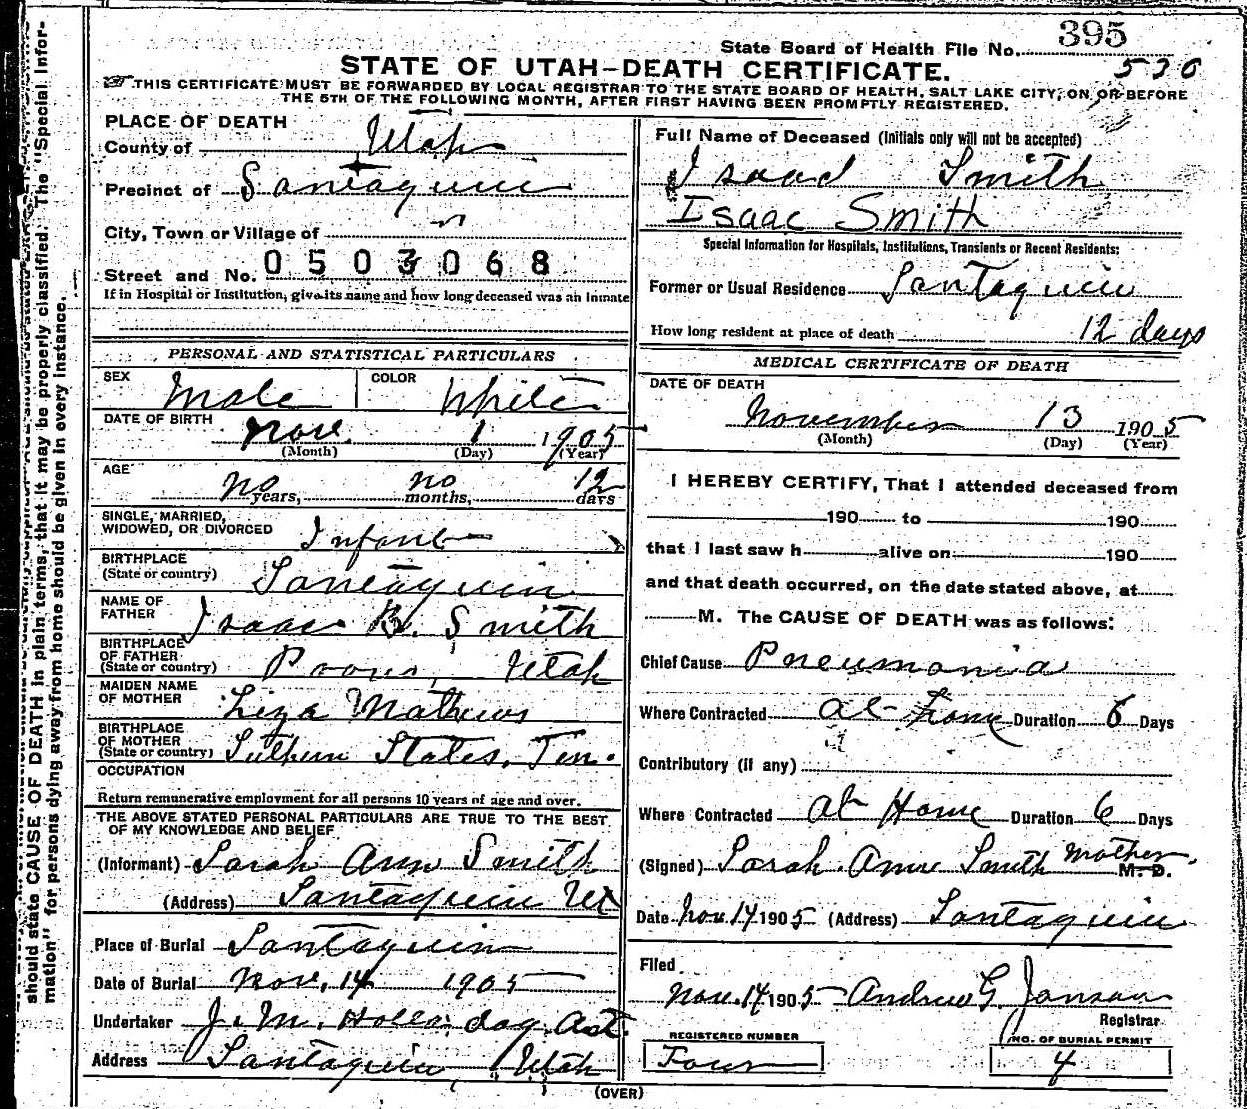 should state CAUSE OF DEATH in plain terms, that it may be properly classified. The "Special Infor-
mation" for persons dying away from home should be given in every instance.
State Board of Health File No. 395
530
STATE OF UTAH-DEATH CERTIFICATE.
THIS CERTIFICATE MUST BE FORWARDED BY LOCAL REGISTRAR TO THE STATE BOARD OF HEALTH, SALT LAKE CITY, ON OR BEFORE
THE 5TH OF THE FOLLOWING MONTH, AFTER FIRST HAVING BEEN PROMPTLY REGISTERED.
PLACE OF DEATH
County of Utah
Precinct of Santaquin
City, Town or Village of
Street and No. 0503068
If in Hospital or Institution, give its name and how long deceased was an Inmate
PERSONAL AND STATISTICAL PARTICULARS
SEX Male COLOR White
DATE OF BIRTH Nov. 1 1905
(Month) (Day) (Year)
AGE no years, no months, 12 days
SINGLE, MARRIED,
WIDOWED, OR DIVORCED Infant
BIRTHPLACE
(State or country) Santaquin
NAME OF
FATHER Isaac B. Smith
BIRTHPLACE
OF FATHER
(State or country) Provo, Utah
MAIDEN NAME
OF MOTHER Liza Mathews
BIRTHPLACE
OF MOTHER
(State or country) Suthurn States, Ten.
OCCUPATION
Return remunerative employment for all persons 10 years of age and over.
THE ABOVE STATED PERSONAL PARTICULARS ARE TRUE TO THE BEST
OF MY KNOWLEDGE AND BELIEF
(Informant) Sarah Ann Smith
(Address) Santaquin Ut
Place of Burial Santaquin
Date of Burial Nov. 14 1905
Undertaker J. M. Holladay Ast.
Address Santaquin, Utah
Full Name of Deceased (Initials only will not be accepted)
Isaac Smith
Isaac Smith
Special Information for Hospitals, Institutions, Transients or Recent Residents:
Former or Usual Residence Santaquin
How long resident at place of death 12 days
MEDICAL CERTIFICATE OF DEATH
DATE OF DEATH
November 13 1905
(Month) (Day) (Year)
I HEREBY CERTIFY, That I attended deceased from
190 to 190
that I last saw h alive on 190
and that death occurred, on the date stated above, at
M. The CAUSE OF DEATH was as follows:
Chief Cause Pneumonia
Where Contracted at Home Duration 6 Days
Contributory (if any)
Where Contracted at Home Duration 6 Days
(Signed) Sarah Ann Smith Mother M. D.
Date Nov. 14 1905 (Address) Santaquin
Filed
Nov. 14 1905 Andrew G Janson
Registrar
REGISTERED NUMBER
Four
NO. OF BURIAL PERMIT
4
(OVER)